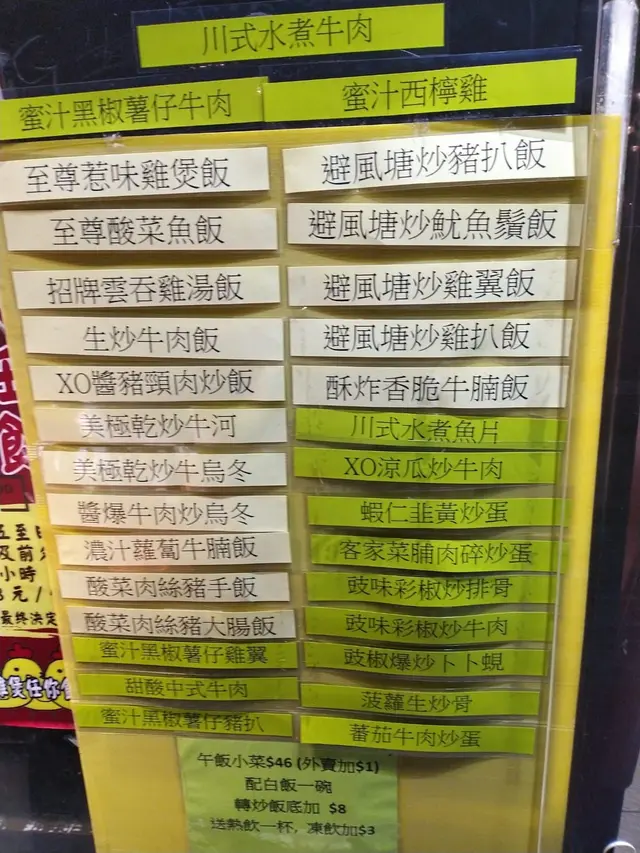 川式水煮牛肉
蜜汁黑椒薯仔牛肉
蜜汁西檸雞
至尊惹味雞煲飯
至尊酸菜魚飯
招牌雲吞雞湯飯
生炒牛肉飯
XO醬豬頸肉炒飯
美極乾炒牛河
美極乾炒牛烏冬
醬爆牛肉炒烏冬
濃汁蘿蔔牛腩飯
酸菜肉絲豬手飯
酸菜肉絲豬大腸飯
蜜汁黑椒薯仔雞翼
甜酸中式牛肉
蜜汁黑椒薯仔豬扒
避風塘炒豬扒飯
避風塘炒魷魚鬚飯
避風塘炒雞翼飯
避風塘炒雞扒飯
酥炸香脆牛腩飯
川式水煮魚片
XO涼瓜炒牛肉
蝦仁韭黃炒蛋
客家菜脯肉碎炒蛋
豉味彩椒炒排骨
豉味彩椒炒牛肉
豉椒爆炒卜卜蜆
菠蘿生炒骨
蕃茄牛肉炒蛋
午飯小菜$46 (外賣加$1)
配白飯一碗
轉炒飯底加 $8
送熱飲一杯, 凍飲加$3
五至
及前
小時
元/
最終決定
煲任你